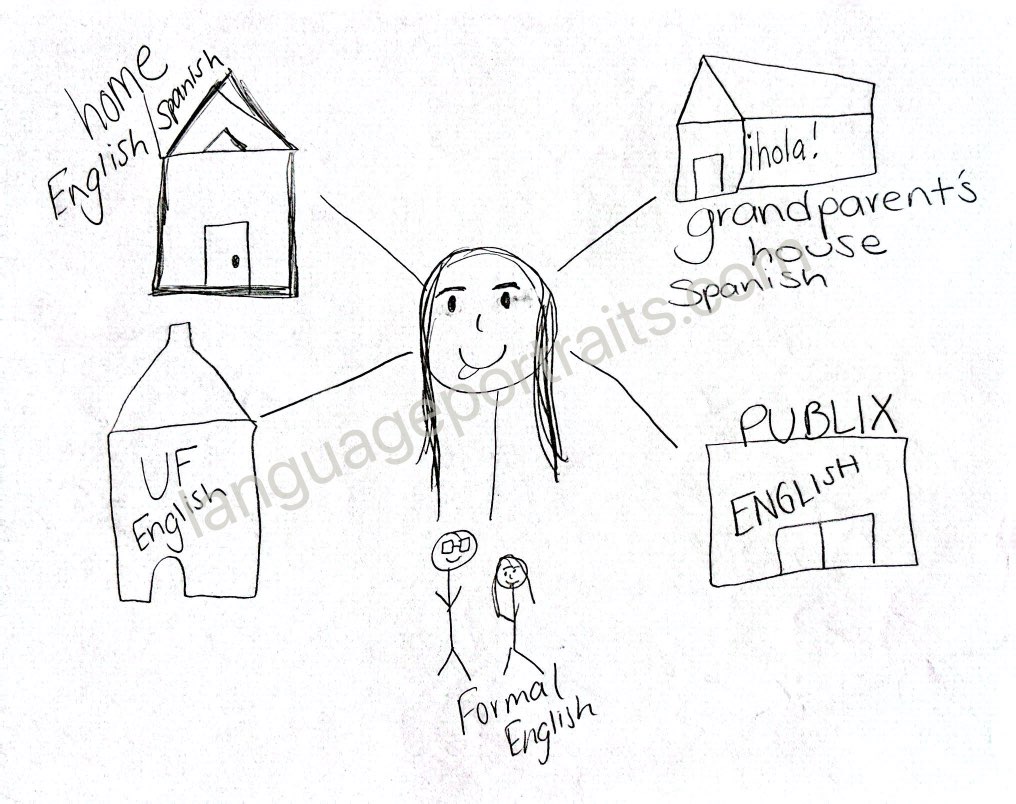 home
English | Spanish
¡hola!
grandparent's
house
Spanish
UF
English
PUBLIX
ENGLISH
Formal
English
languageportraits.com